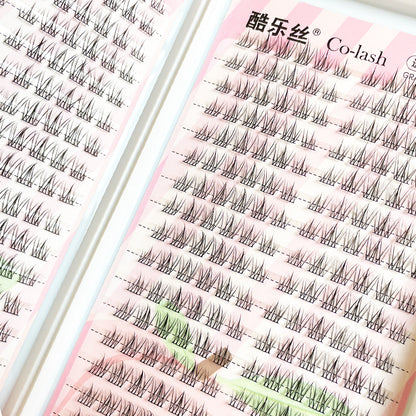 酷乐丝® Co-lash